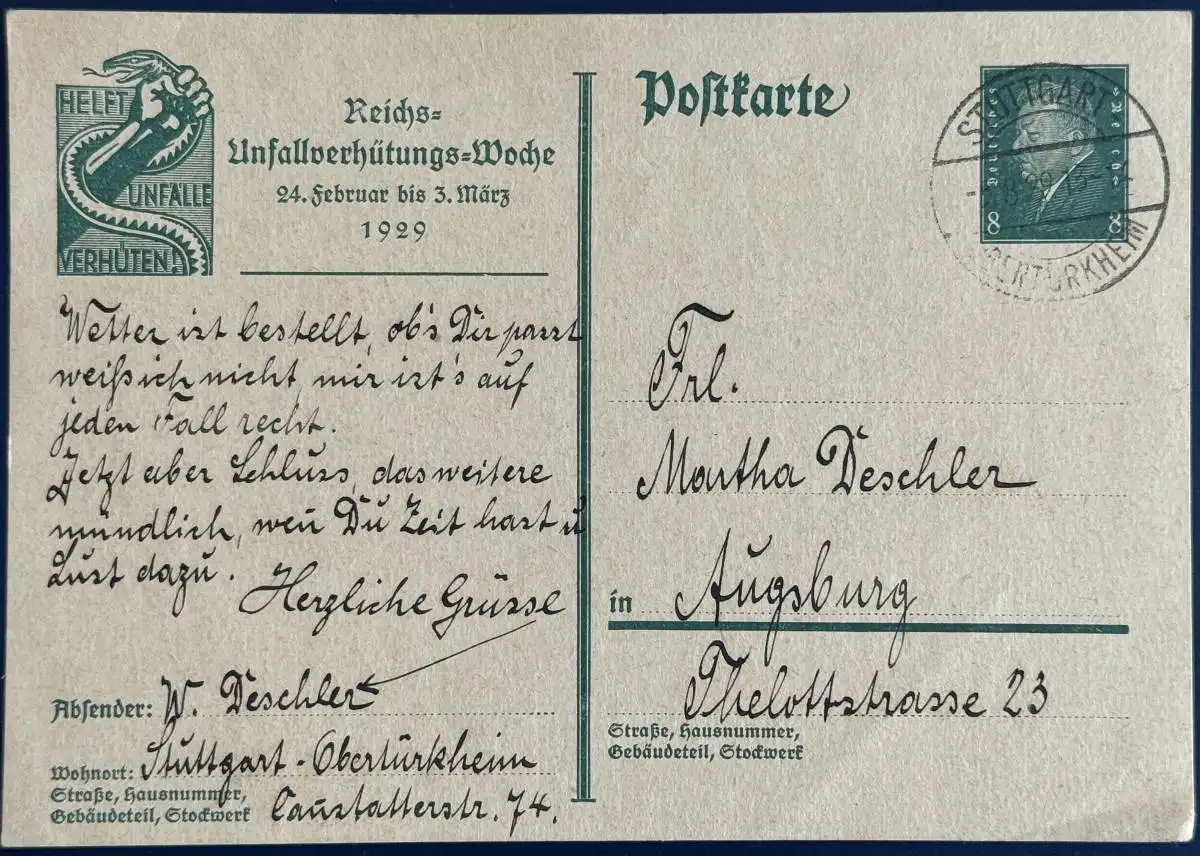 HELFT
UNFALLE
VERHÜTEN!
Reichs=
Unfallverhütungs=Woche
24. Februar bis 3. März
1929
Postkarte
Deutsches Reich
8 8
STUTTGART
OBERTÜRKHEIM
Wetter ist bestellt, ob's Dir passt
weiß ich nicht, mir ist's auf
jeden Fall recht.
Jetzt aber Schluss, das weitere
mündlich, wen̄ Du Zeit hast u
Lust dazu.
Herzliche Grüsse
Absender: W. Deschler
Wohnort: Stuttgart - Obertürkheim
Straße, Hausnummer,
Gebäudeteil, Stockwerk
Can̄statterstr. 74.
Frl.
Martha Deschler
in Augsburg
Thelottstrasse 23
Straße, Hausnummer,
Gebäudeteil, Stockwerk